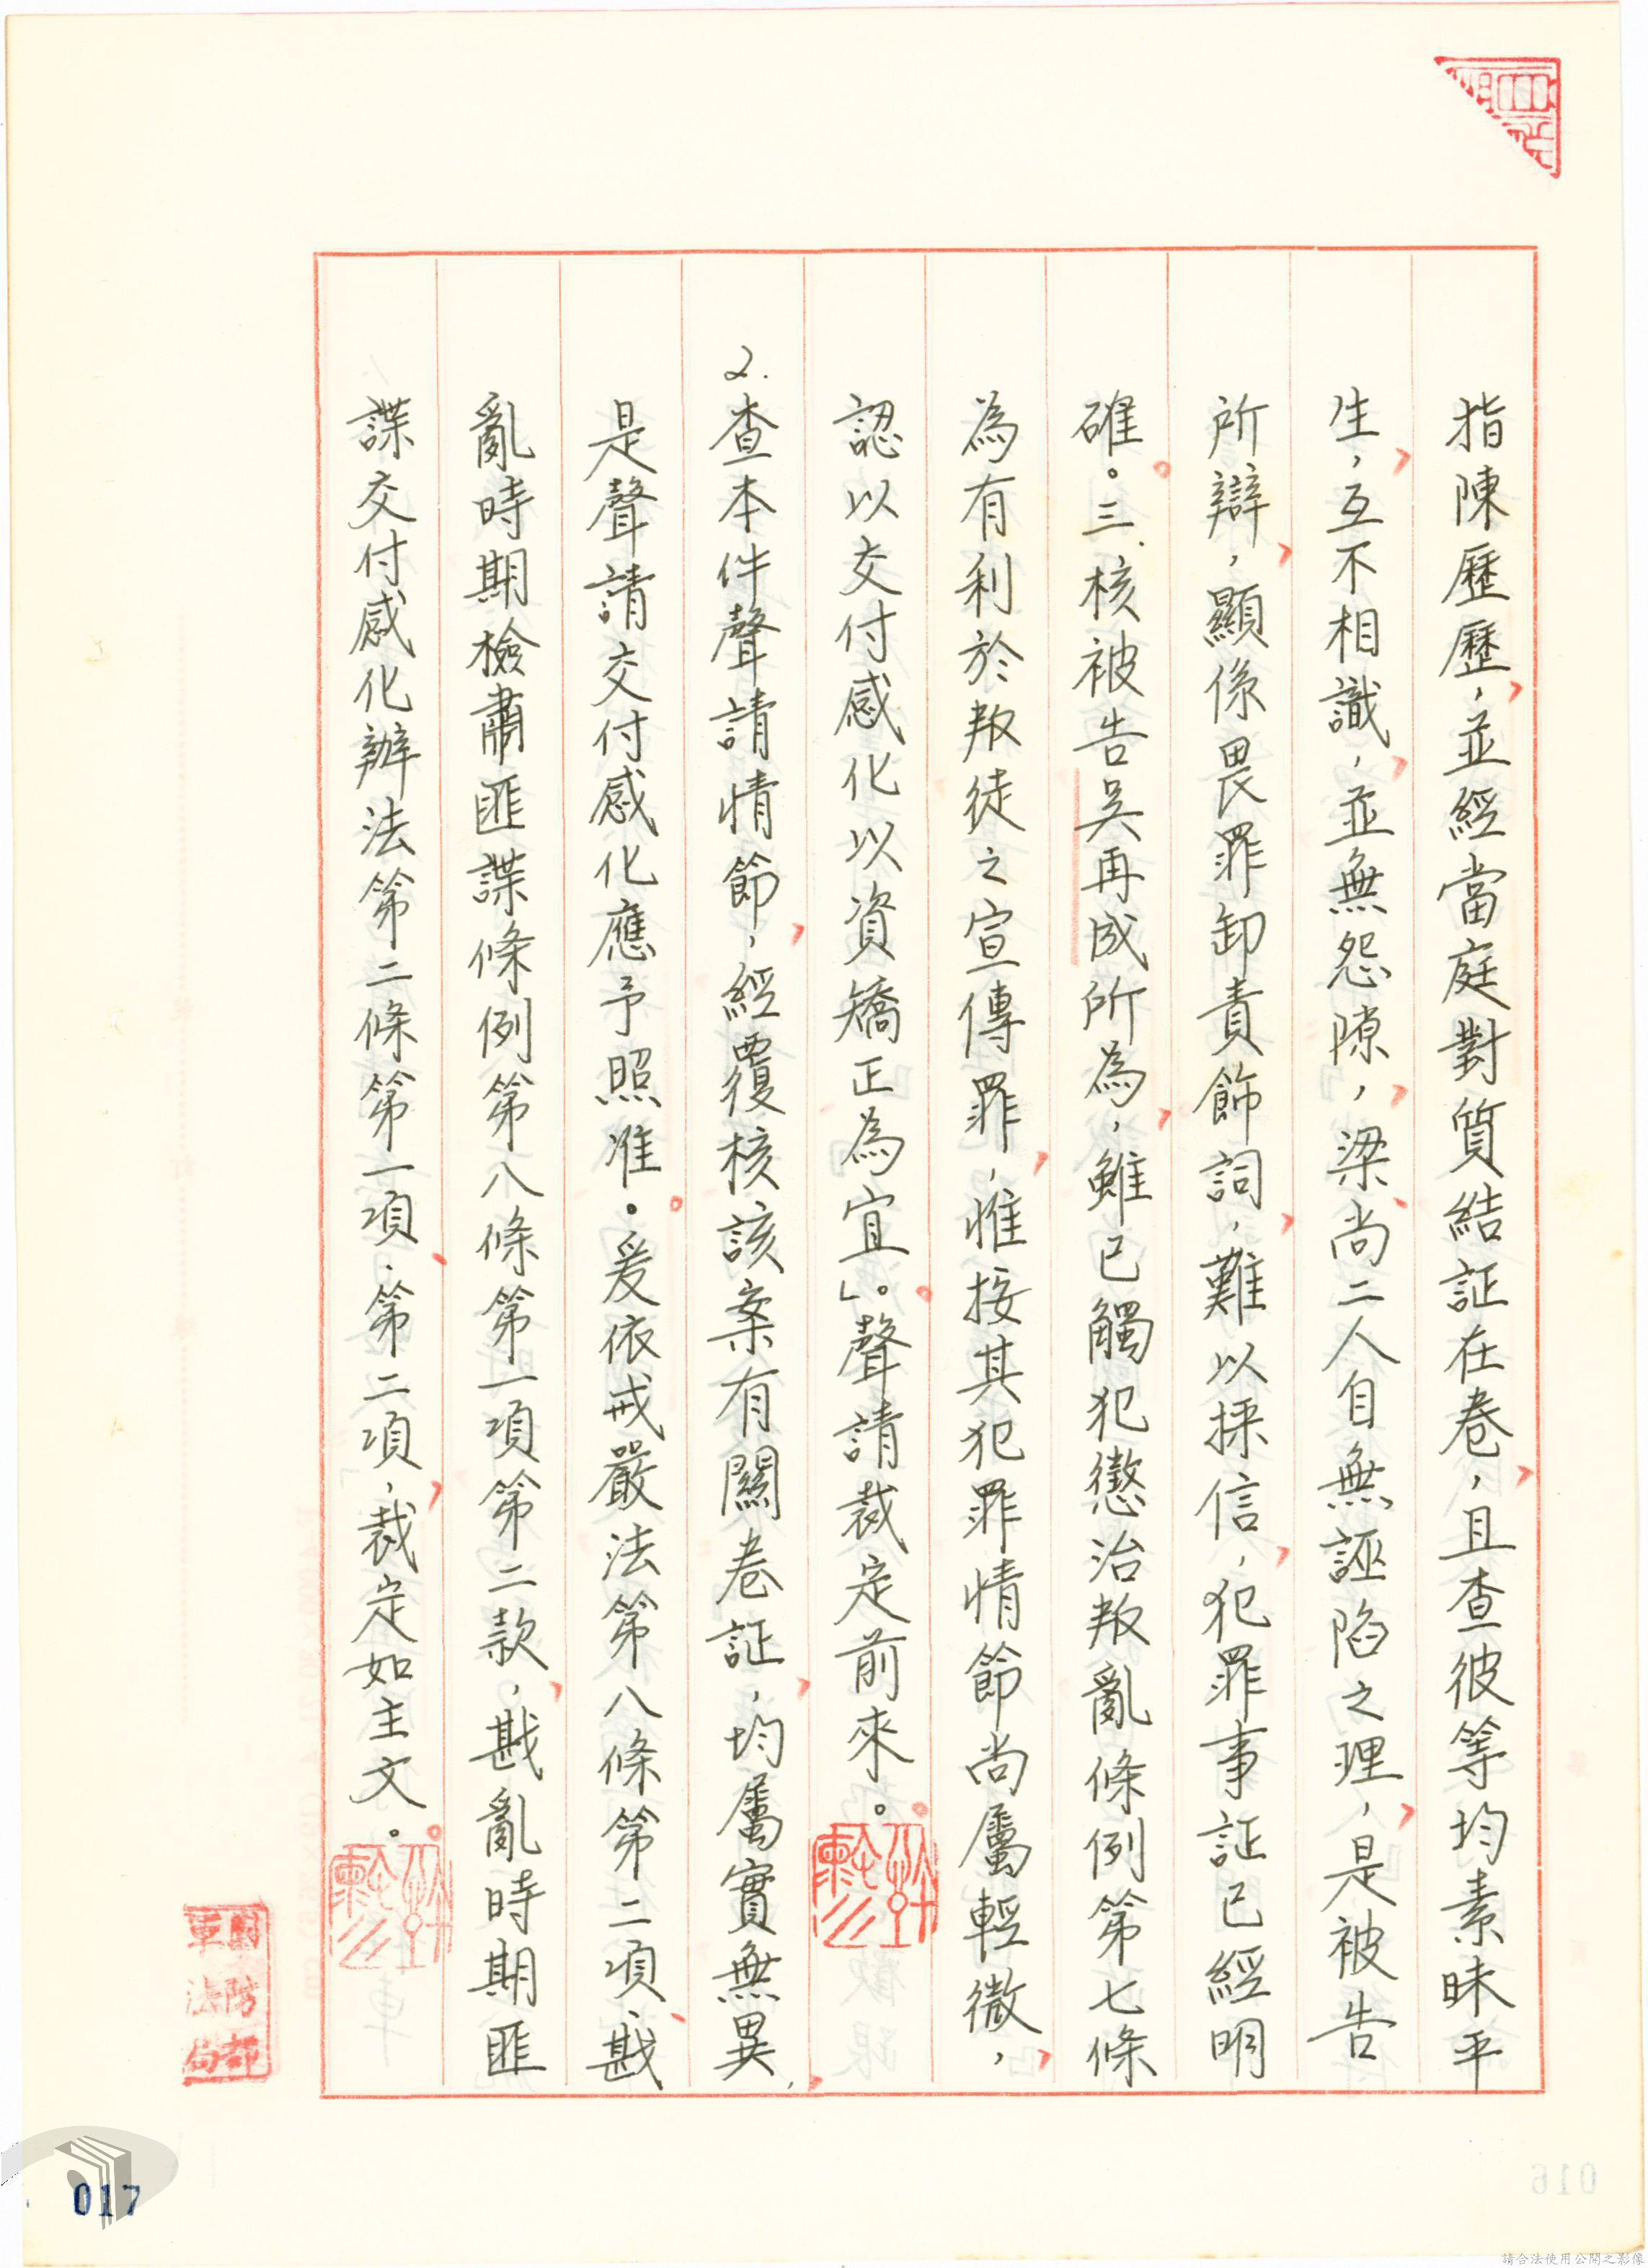 指陳歷歷，並經當庭對質結証在卷，且查彼等均素昧平
生，互不相識，並無怨隙，梁尚二人自無誣陷之理，是被告
所辯，顯係畏罪卸責飾詞，難以採信，犯罪事証已經明
確。三.核被告吳再成所為，雖已觸犯懲治叛亂條例第七條
為有利於叛徒之宣傳罪，惟按其犯罪情節尚屬輕微，
認以交付感化以資矯正為宜」。聲請裁定前來。
2.查本件聲請情節，經覆核該案有關卷証，均屬實無異，
是聲請交付感化應予照准。爰依戒嚴法第八條第二項、戡
亂時期檢肅匪諜條例第八條第一項第二款，戡亂時期匪
諜交付感化辦法第二條第一項、第二項，裁定如主文。
國防部
軍法局
017
016
請合法使用公開之影像